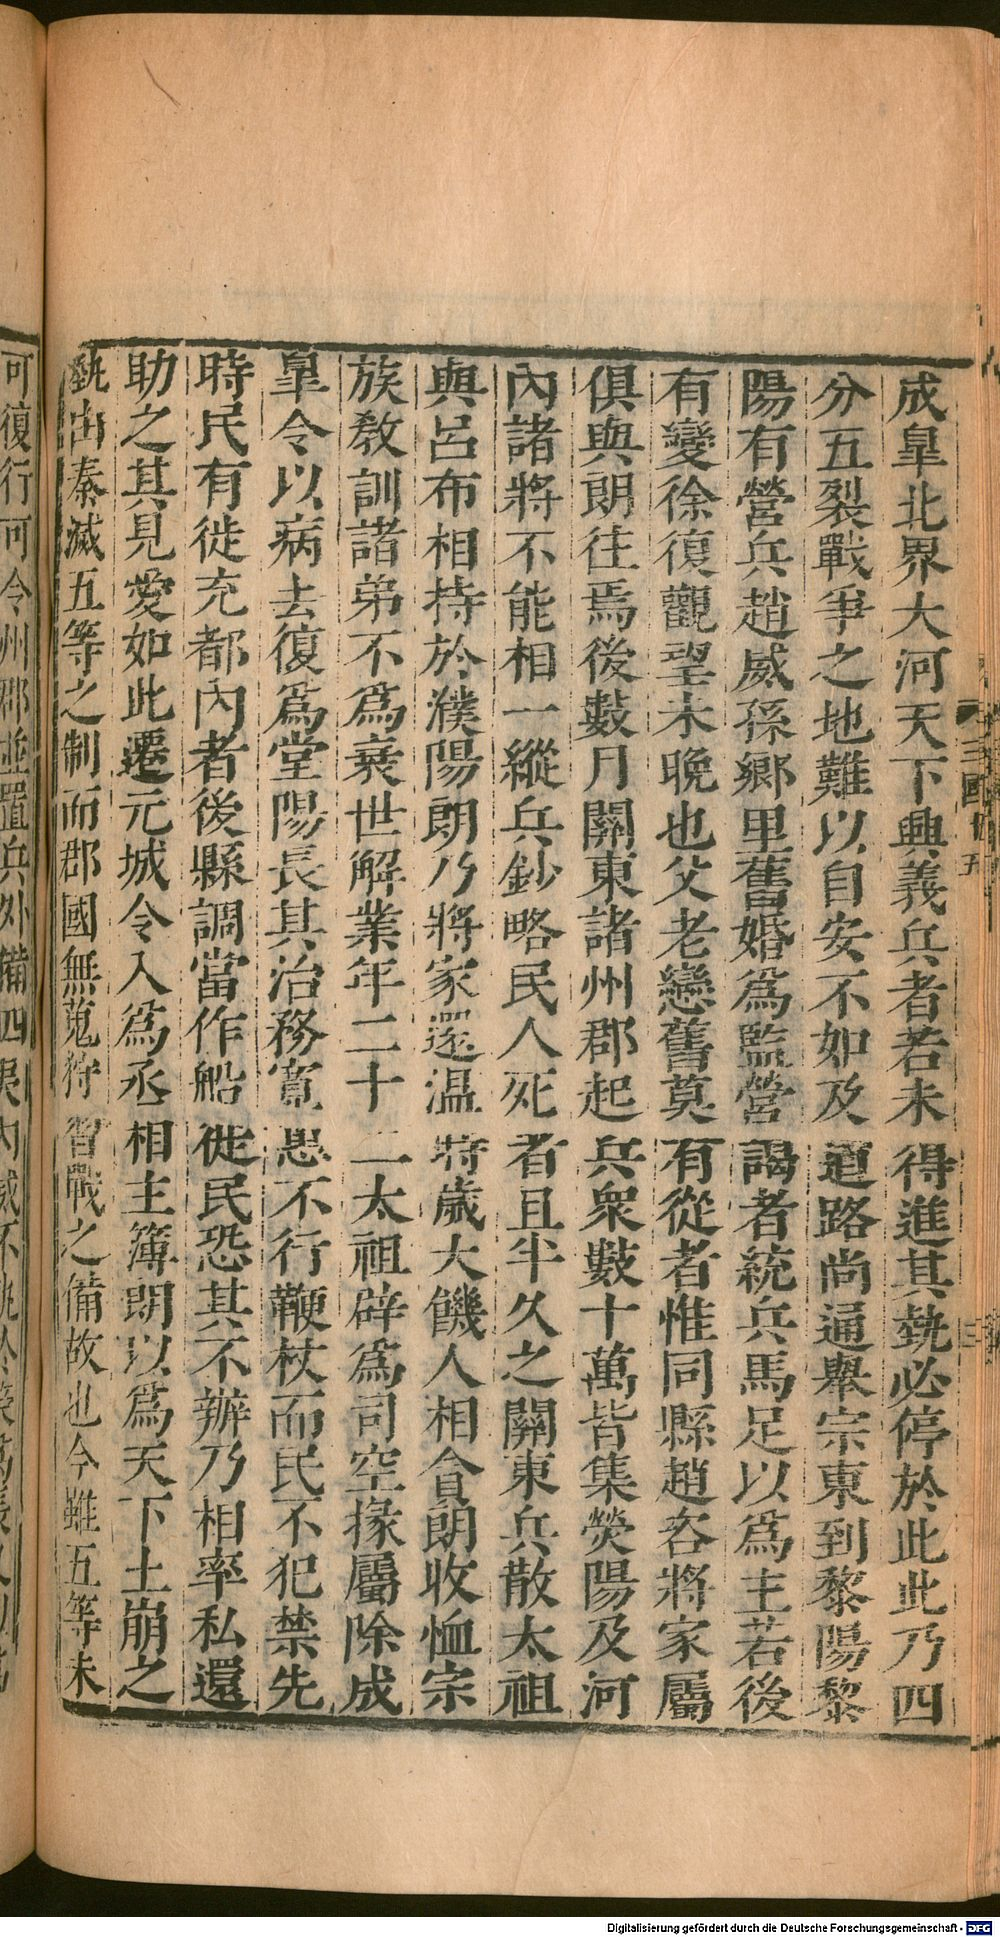 成臯北界大河天下興義兵者若未得進其埶必停於此此乃四
分五裂戰爭之地難以自安不如及道路尚通舉宗東到黎陽黎
陽有營兵趙威孫鄉里舊婚爲監營謁者統兵馬足以爲主若後
有變徐復觀望未晚也父老戀舊莫有從者惟同縣趙咨將家屬
俱與朗往焉後數月關東諸州郡起兵衆數十萬皆集熒陽及河
內諸將不能相一縱兵鈔略民人死者且半久之關東兵散太祖
與呂布相持於濮陽朗乃將家還温時歲大饑人相食朗收恤宗
族敎訓諸弟不爲衰世解業年二十二太祖辟爲司空掾屬除成
臯令以病去復爲堂陽長其治務寬惠不行鞭杖而民不犯禁先
時民有徙充都內者後縣調當作船徙民恐其不辦乃相率私還
助之其見愛如此遷元城令入爲丞相主簿朗以爲天下土崩之
埶由秦滅五等之制而郡國無蒐狩習戰之備故也今雖五等未
可復行可令州郡並置兵外備四夷內威不
三國
五
Digitalisierung gefördert durch die Deutsche Forschungsgemeinschaft - DFG